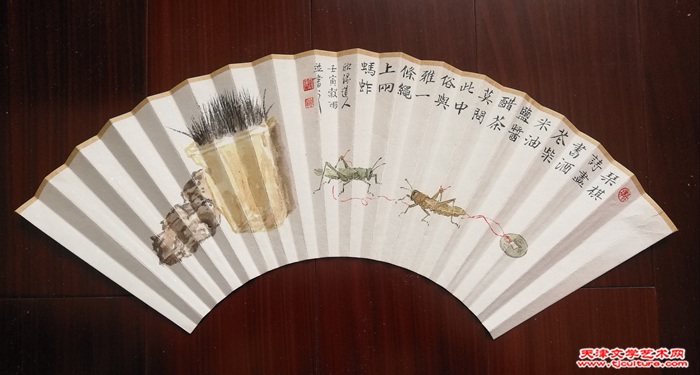 琴棋
詩畫
書酒
花柴
米油
鹽醬
醋茶
莫問
此中
俗與
雅一
條繩
上兩
螞蚱
道人
壬寅穀雨
並書
天津文学艺术网
www.tjculture.com